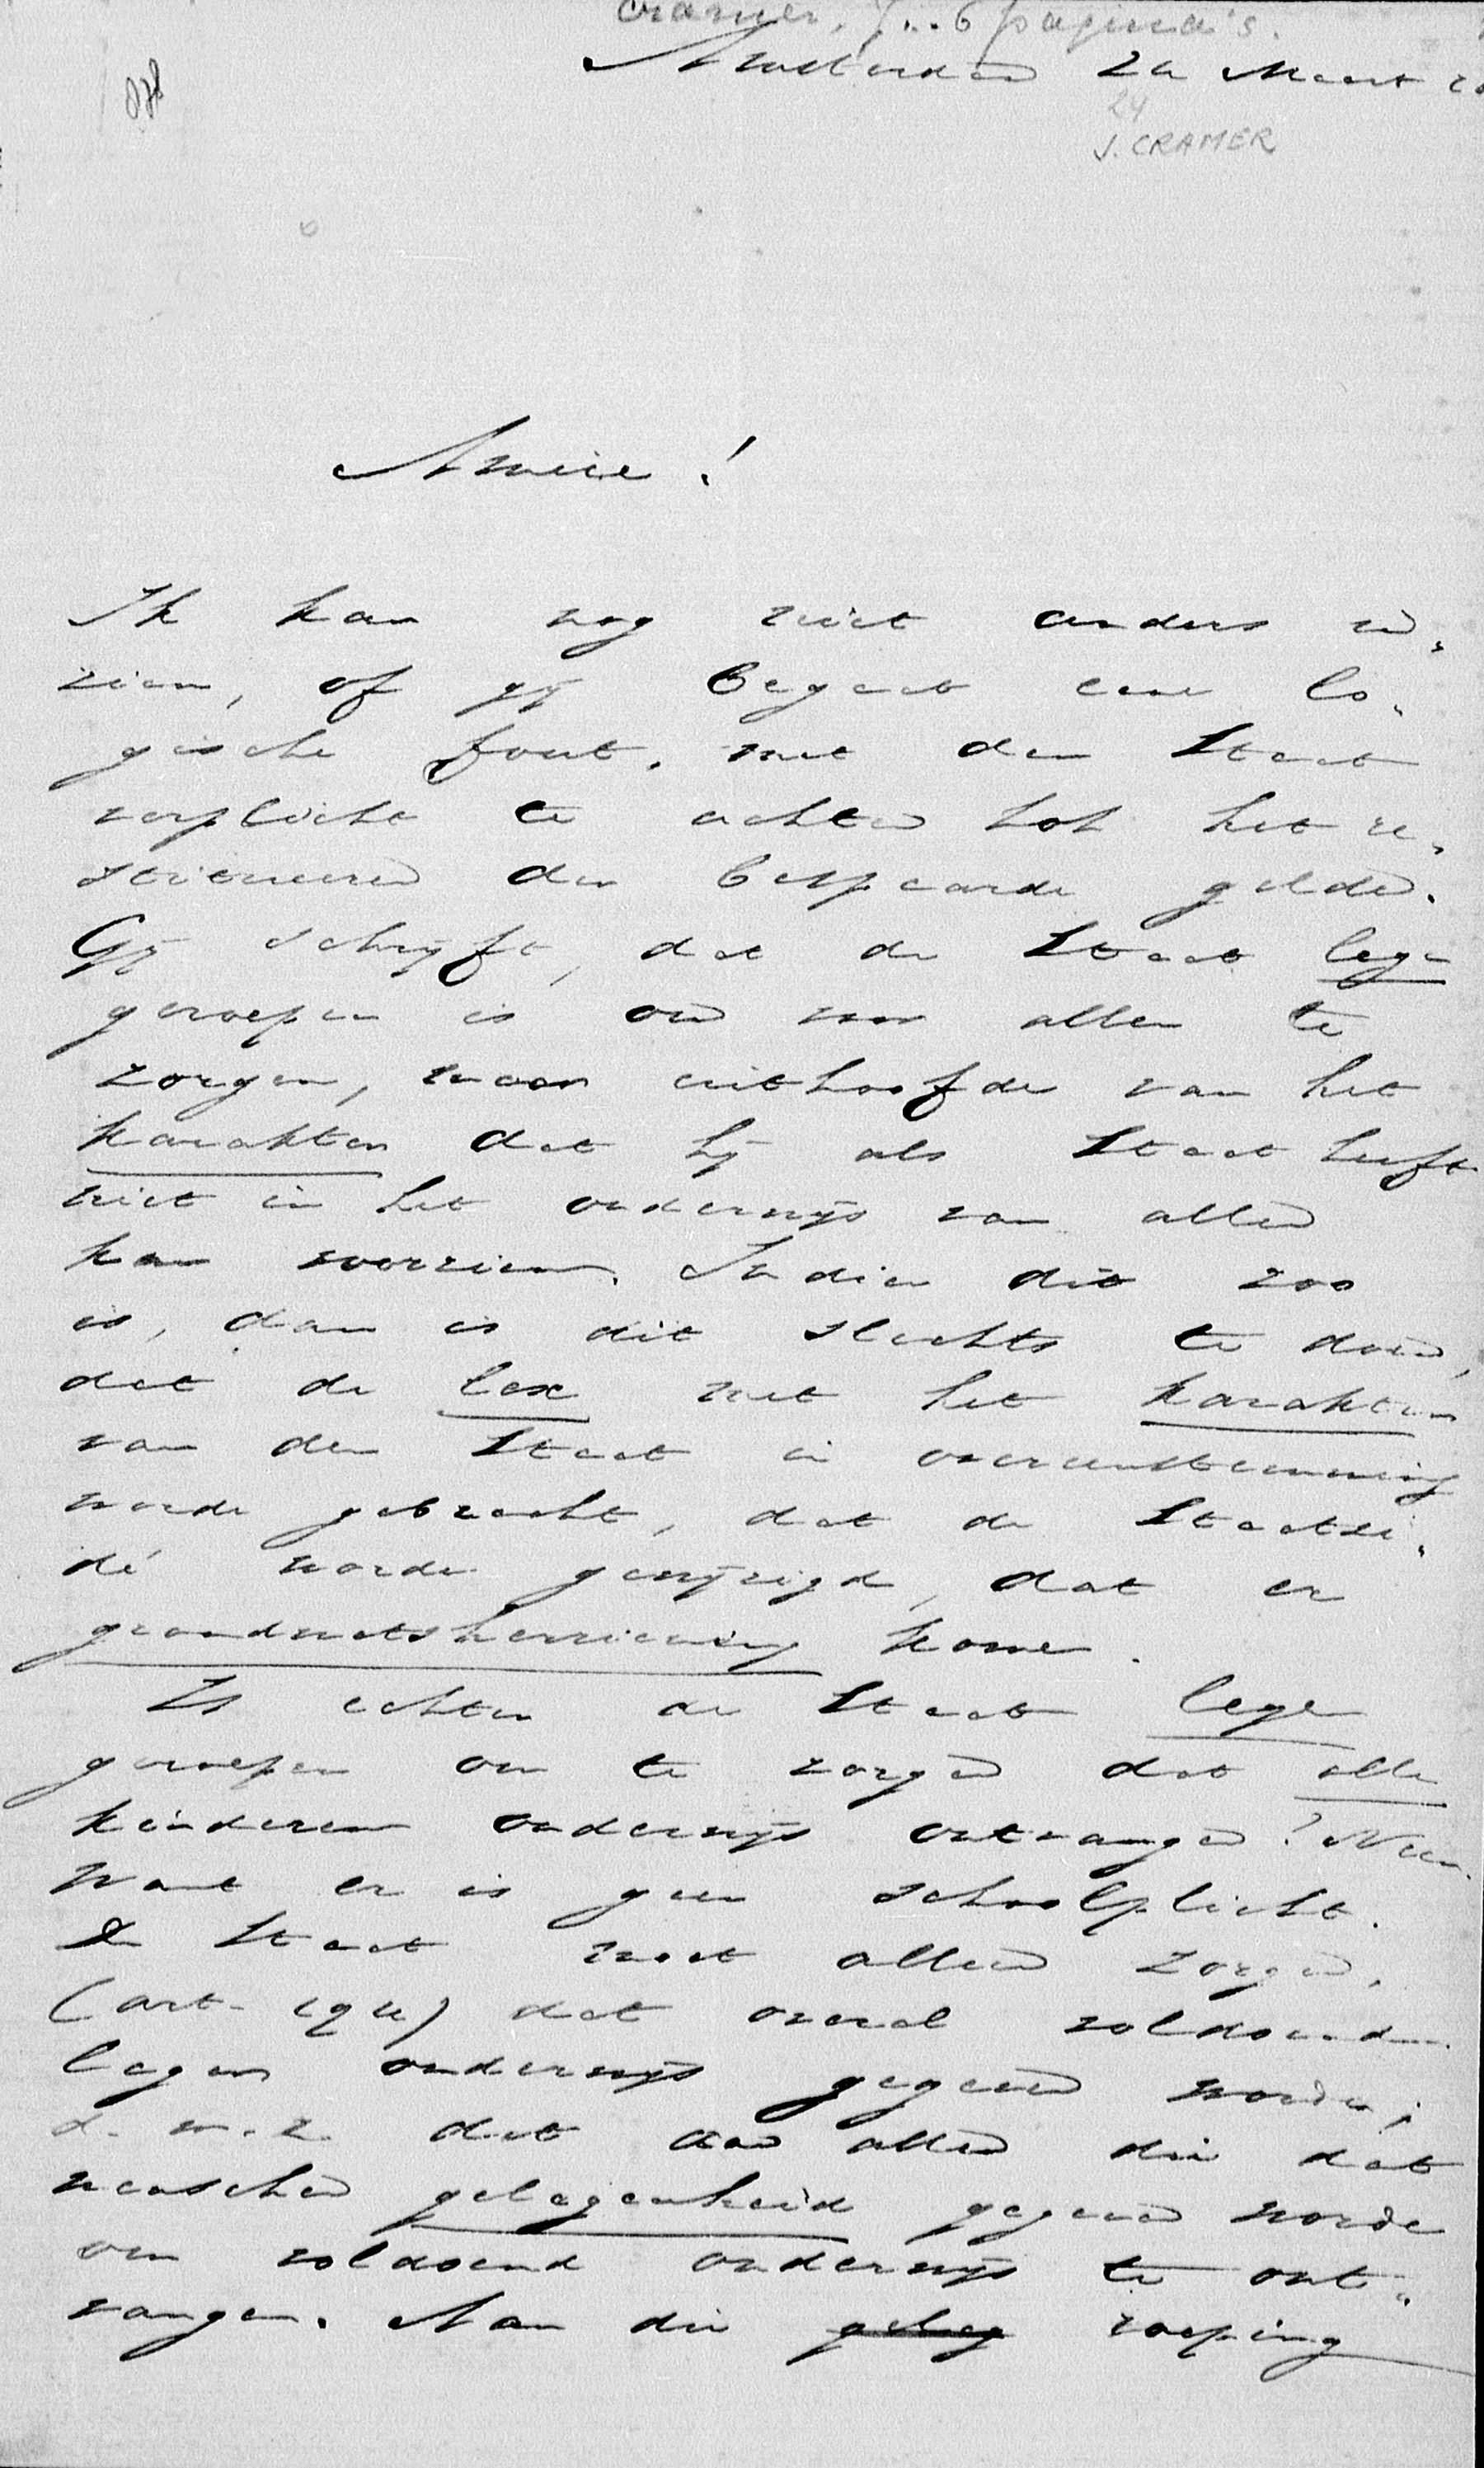 Cramer, J. . 6 pagina's.
Amsterdam 24 Maart
24
J. CRAMER
Amice!
Ik kan nog niet anders in,
zien, of gij begaat eene lo,
gische fout, met den Staat
verplicht te achten tot het re,
stitueeren der bespaarde gelden.
Gij schrijft, dat de Staat lege
geroepen is om voor allen te
zorgen, maar uit hoofde van het
karakter dat hij als Staat heeft
niet in het onderwijs van allen
kan voorzien. Indien dit zoo
is, dan is dit slechts te doen,
dat de lex met het karakter
van den Staat in overeenstemming
worde gebracht, dat de Staatsi,
dé worde gewijzigd, dat er
grondwetsherziening kome.
Is echter de Staat lege
geroepen om te zorgen dat alle
kinderen onderwijs ontvangen? Neen.
Want er is geen schoolplicht.
De Staat moet alleen zorgen,
(art. 194) dat overal voldoend
lager onderwijs gegeven worde;
d. w. z. dat aan allen die dat
wenschen gelegenheid gegeven worde
om voldoend onderwijs te ont,
vangen. Aan die roeping